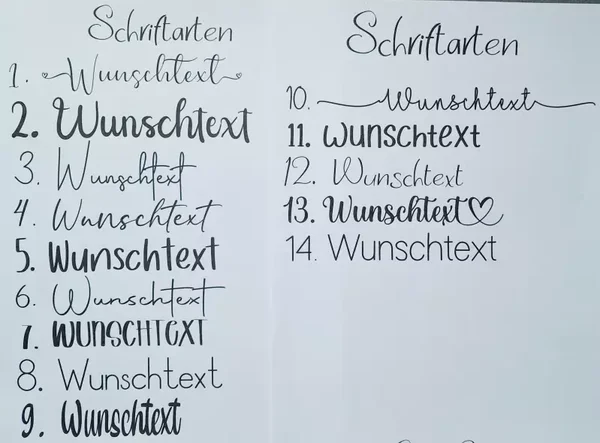 Schriftarten
1. Wunschtext
2. Wunschtext
3. Wunschtext
4. Wunschtext
5. Wunschtext
6. Wunschtext
7. WUNSCHTEXT
8. Wunschtext
9. Wunschtext
Schriftarten
10. Wunschtext
11. Wunschtext
12. Wunschtext
13. Wunschtext
14. Wunschtext